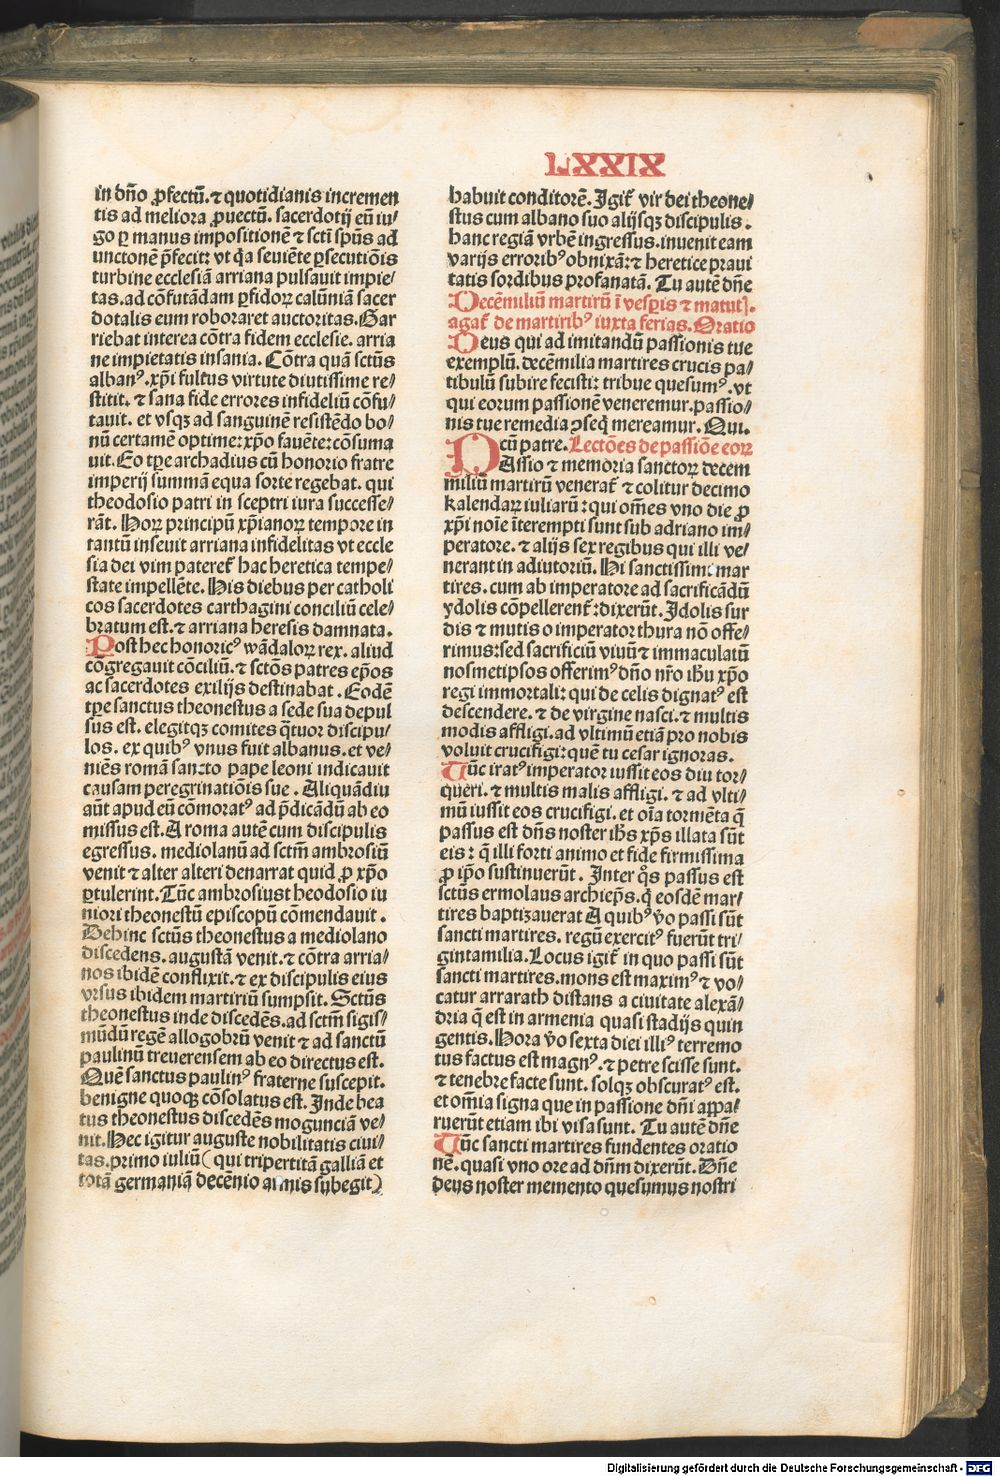 LXXIX
in dn̄o ꝓfectū. ⁊ quotidianis incremen
tis ad meliora ꝓuectū. sacerdotij eū iu⸗
go ꝑ manus impositionē ⁊ sctī spūs ad
unctonē p̄fecit: vt q̄a seuiēte ꝑsecutiōis
turbine ecclesiā arriana pulsauit impie⸗
tas. ad cōfutādam ꝑfidoꝝ calūniā sacer
dotalis eum roboraret auctoritas. Gar
riebat interea cōtra fidem ecclesie. arria
ne impietatis insania. Cōtra quā sctūs
albanꝰ. xp̄i fultus virtute diutissime re⸗
stitit. ⁊ sana fide errores infideliū cōfu⸗
tauit. et vsqꝫ ad sanguinē resistēdo bo⸗
nū certamē optime: xp̄o fauēte: cōsuma
uit. Eo tꝑe archadius cū honorio fratre
imperij summā equa sorte regebat. qui
theodosio patri in sceptri iura successe⸗
rāt. Hoꝝ principū xp̄ianoꝝ tempore in
tantū inseuit arriana infidelitas vt eccle
sia dei vim pateret᷑ hac heretica tempe⸗
state impellēte. His diebus per catholi
cos sacerdotes carthagini conciliū cele⸗
bratum est. ⁊ arriana heresis damnata.
Post hec honoricꝰ wādaloꝝ rex. aliud
cōgregauit cōciliū. ⁊ sctōs patres ep̄os
ac sacerdotes exilijs destinabat. Eodē
tꝑe sanctus theonestus a sede sua depul
sus est. elegitqꝫ comites q̄tuor discipu⸗
los. ex quibꝰ vnus fuit albanus. et ve⸗
niēs romā sancto pape leoni indicauit
causam peregrinatiōis sue. Aliquādiu
aūt apud eū cōmoratꝰ ad p̄dicādū ab eo
missus est. A roma autē cum discipulis
egressus. mediolanū ad sctm̄ ambrosiū
venit ⁊ alter alteri denarrat quid ꝓ xp̄o
ꝑtulerint. Tūc ambrosiust heodosio iu
niori theonestū episcopū cōmendauit.
Dehinc sctūs theonestus a mediolano
discedens. augustā venit. ⁊ cōtra arria⸗
nos ibidē conflixit. ⁊ ex discipulis eius
vrsus ibidem martiriū sumpsit. Sctūs
theonestus inde discedēs. ad sctm̄ sigis⸗
mūdū regē allogobrū venit ⁊ ad sanctū
paulinū treuerensem ab eo directus est.
Quē sanctus paulinꝰ fraterne suscepit.
benigne quoqꝫ cōsolatus est. Inde bea
tus theonestus discedēs mogunciā ve⸗
nit. Hec igitur auguste nobilitatis ciui⸗
tas. primo iuliū (qui tripertitā galliā et
totā germaniā decēnio annis subegit)
habuit conditorē. Igit᷑ vir dei theone⸗
stus cum albano suo alijsqꝫ discipulis.
hanc regiā vrbē ingressus. inuenit eam
varijs erroribꝰ obnixā: ⁊ heretice praui
tatis sordibus profanatā. Tu autē dn̄e
Decēmiliū martirū ī vesꝑis ⁊ matut᷑.
agat᷑ de martiribꝰ iuxta ferias. Oratio
Deus qui ad imitandū passionis tue
exemplū. decēmilia martires crucis pa⸗
tibulū subire fecisti: tribue quesumꝰ. vt
qui eorum passionē veneremur. passio⸗
nis tue remedia ꝯseq̄ mereamur. Qui.
cū patre. Lectōes de passiōe eoꝝ
PAssio ⁊ memoria sanctoꝝ decem
miliū martirū venerat᷑ ⁊ colitur decimo
kalendaꝝ iuliarū: qui om̄es vno die ꝓ
xp̄i noīe īterempti sunt sub adriano im⸗
peratore. ⁊ alijs sex regibus qui illi ve⸗
nerant in adiutoriū. Hi sanctissimi mar
tires. cum ab imperatore ad sacrificādū
ydolis cōpellerent᷑: dixerūt. Idolis sur
dis ⁊ mutis o imperator thura nō offe⸗
rimus: sed sacrificiū viuū ⁊ immaculatū
nosmetipsos offerimꝰ dn̄o nr̄o ih̄u xp̄o
regi immortali: qui de celis dignatꝰ est
descendere. ⁊ de virgine nasci. ⁊ multis
modis affligi. ad vltimū etiā pro nobis
voluit crucifigi: quē tu cesar ignoras.
Tūc iratꝰ imperator iussit eos diu tor⸗
queri. ⁊ multis malis affligi. ⁊ ad vlti⸗
mū iussit eos crucifigi. et oīa tormēta q̄
passus est dn̄s noster ih̄s xp̄s illata sūt
eis: q̄ illi forti animo et fide firmissima
ꝓ ip̄o sustinuerūt. Inter q̄s passus est
sctūs ermolaus archiep̄s. q̄ eosdē mar⸗
tires baptizauerat A quibꝰ v̄o passi sūt
sancti martires. regū exercitꝰ fuerūt tri⸗
gintamilia. Locus igit᷑ in quo passi sūt
sancti martires. mons est maximꝰ ⁊ vo⸗
catur arrarath distans a ciuitate alexā⸗
dria q̄ est in armenia quasi stadijs quin
gentis. Hora v̄o sexta diei illiꝰ terremo
tus factus est magnꝰ. ⁊ petre scisse sunt.
⁊ tenebre facte sunt. solqꝫ obscuratꝰ est.
et om̄ia signa que in passione dn̄i appa⸗
ruerūt etiam ibi visa sunt. Tu autē dn̄e
Tūc sancti martires fundentes oratio
nē. quasi vno ore ad dn̄m dixerūt. Dn̄e
deus noster memento quesumus nostri
Digitalisierung gefördert durch die Deutsche Forschungsgemeinschaft - DFG